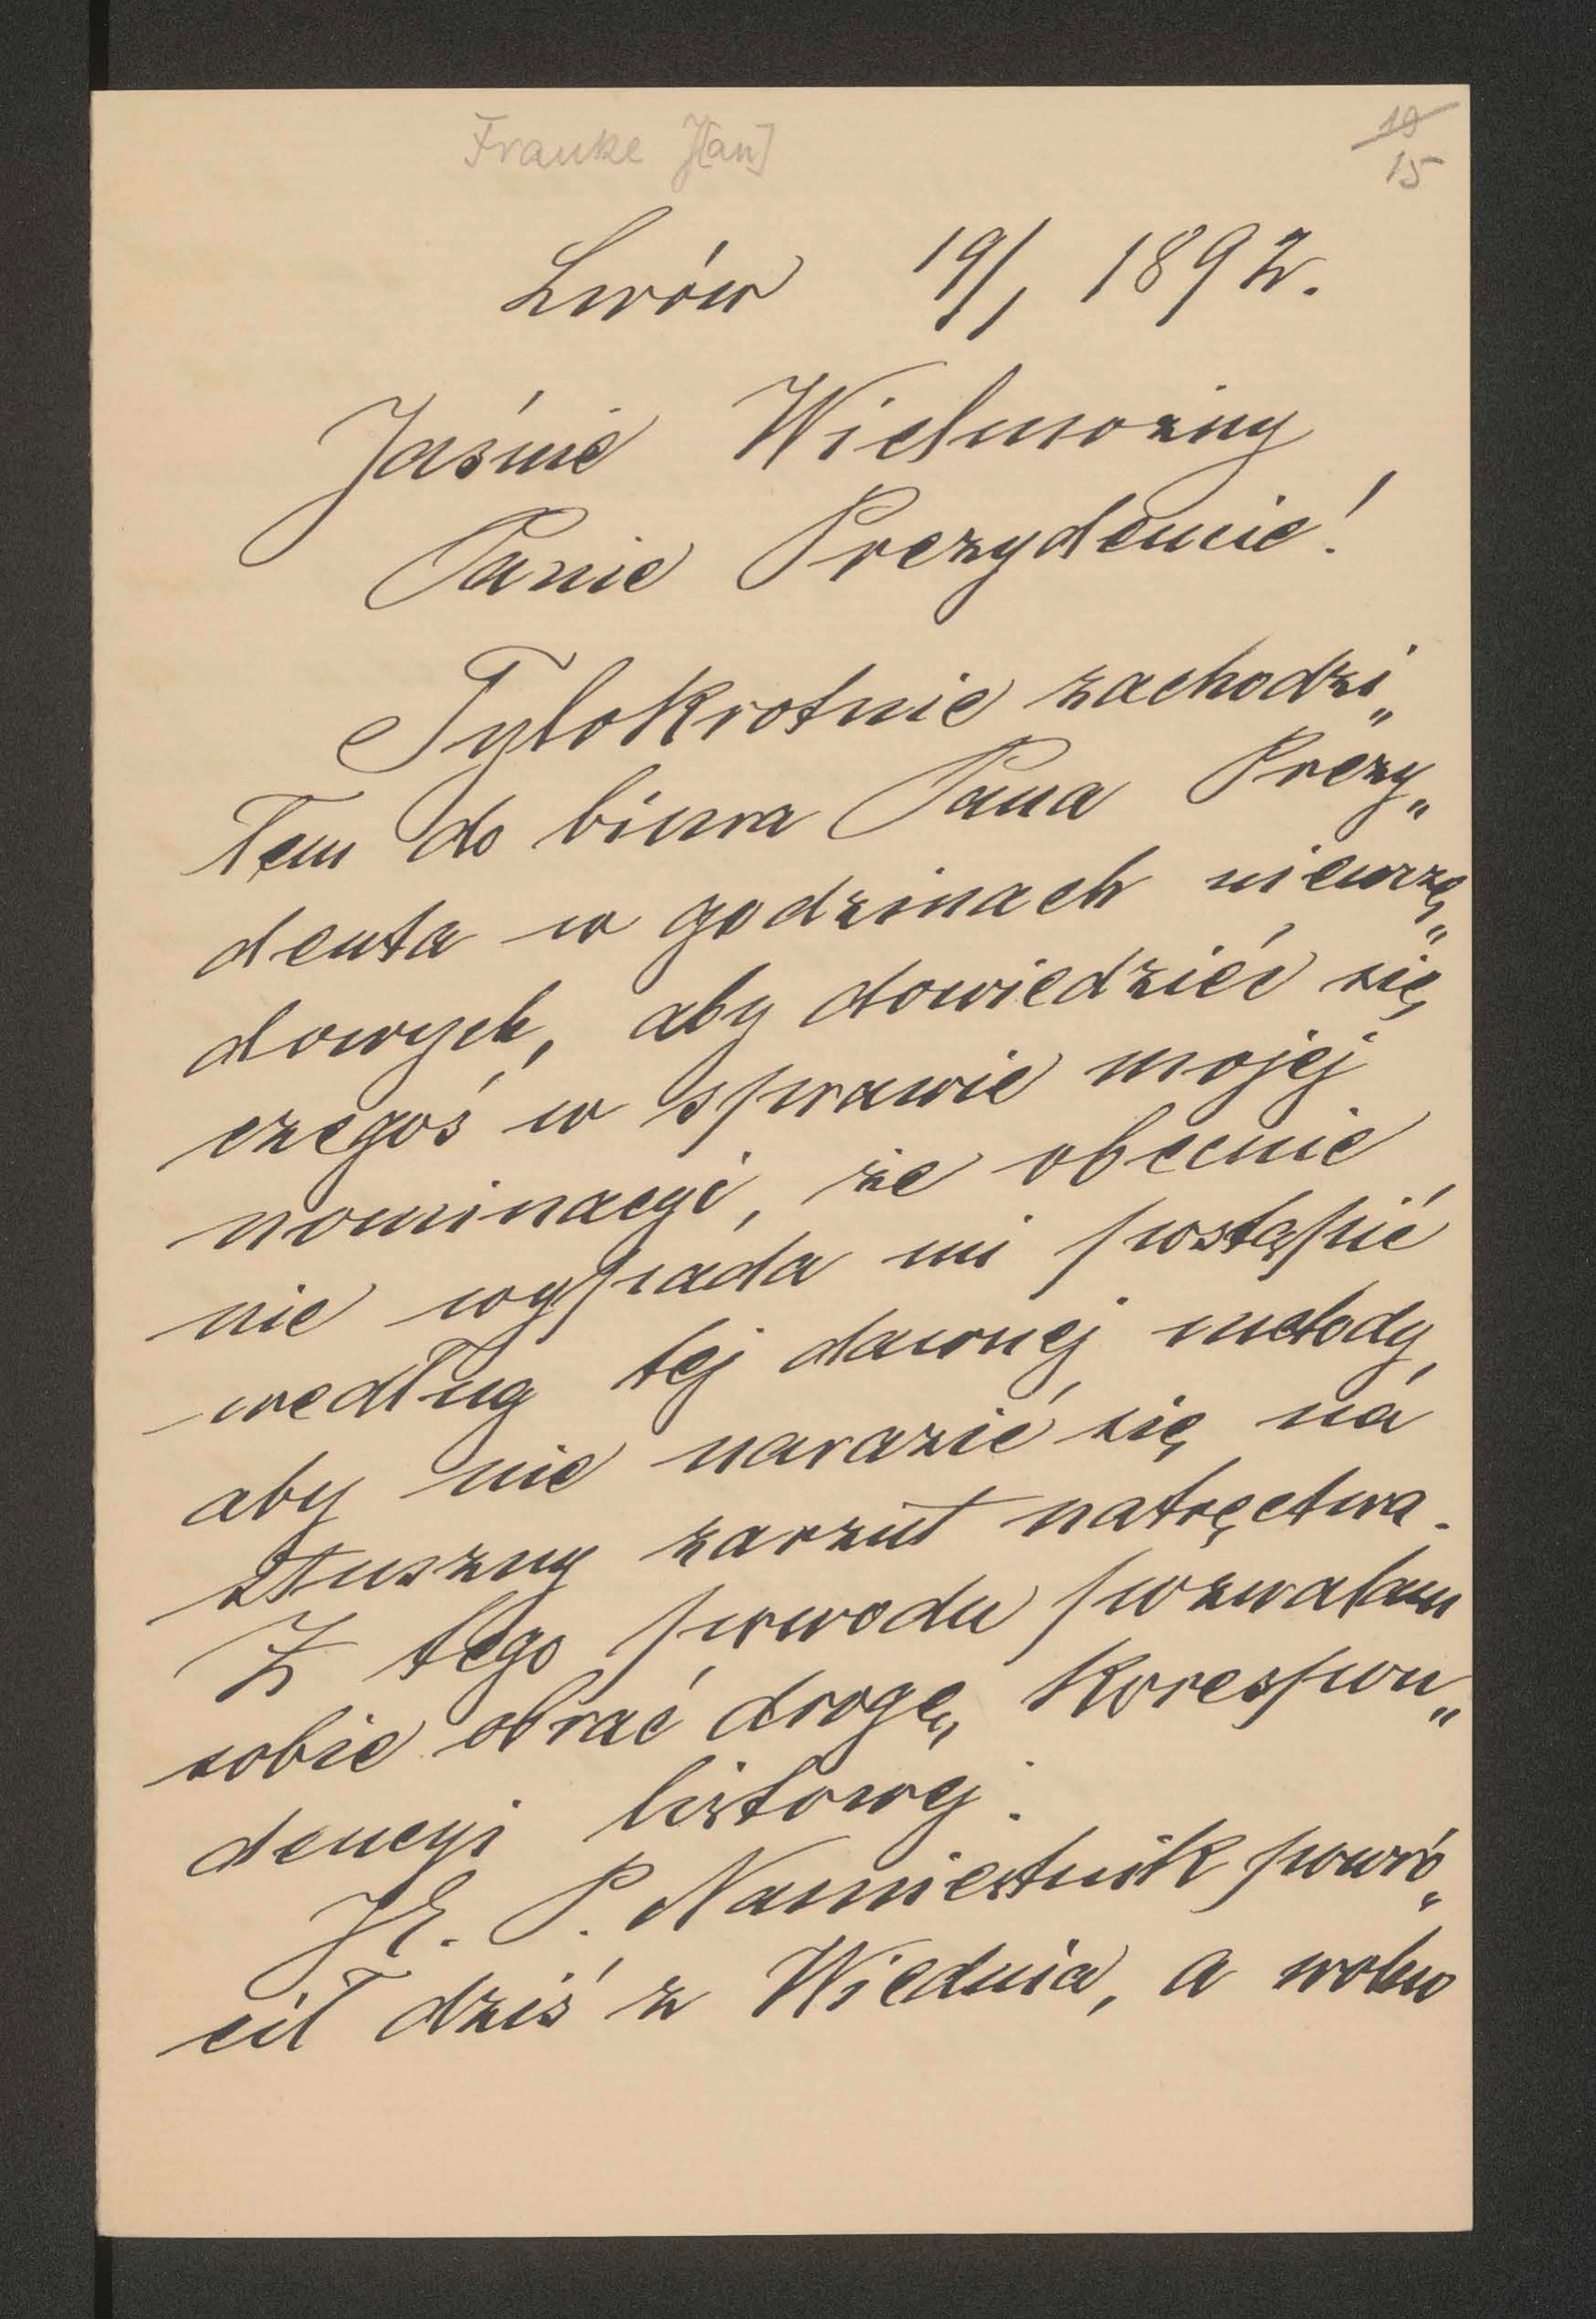 Franke J[an]
19
15
Lwów 19/1 1892.
Jaśnie Wielmożny
Panie Prezydencie!
Tylokrotnie zachodzi„
łem do biura Pana Prezy„
denta w godzinach nieurzę„
dowych, aby dowiedzieć się
czegoś w sprawie mojej
nominacyi, że obecnie
nie wypada mi postąpić
według tej dawnej metody,
aby nie narazić się na
słuszny zarzut natręctwa.
Z tego powodu pozwalam
sobie obrać drogę korespon„
dencyi listowej.
JE. P. Namiestnik powró„
cił dziś z Wiednia, a wobec